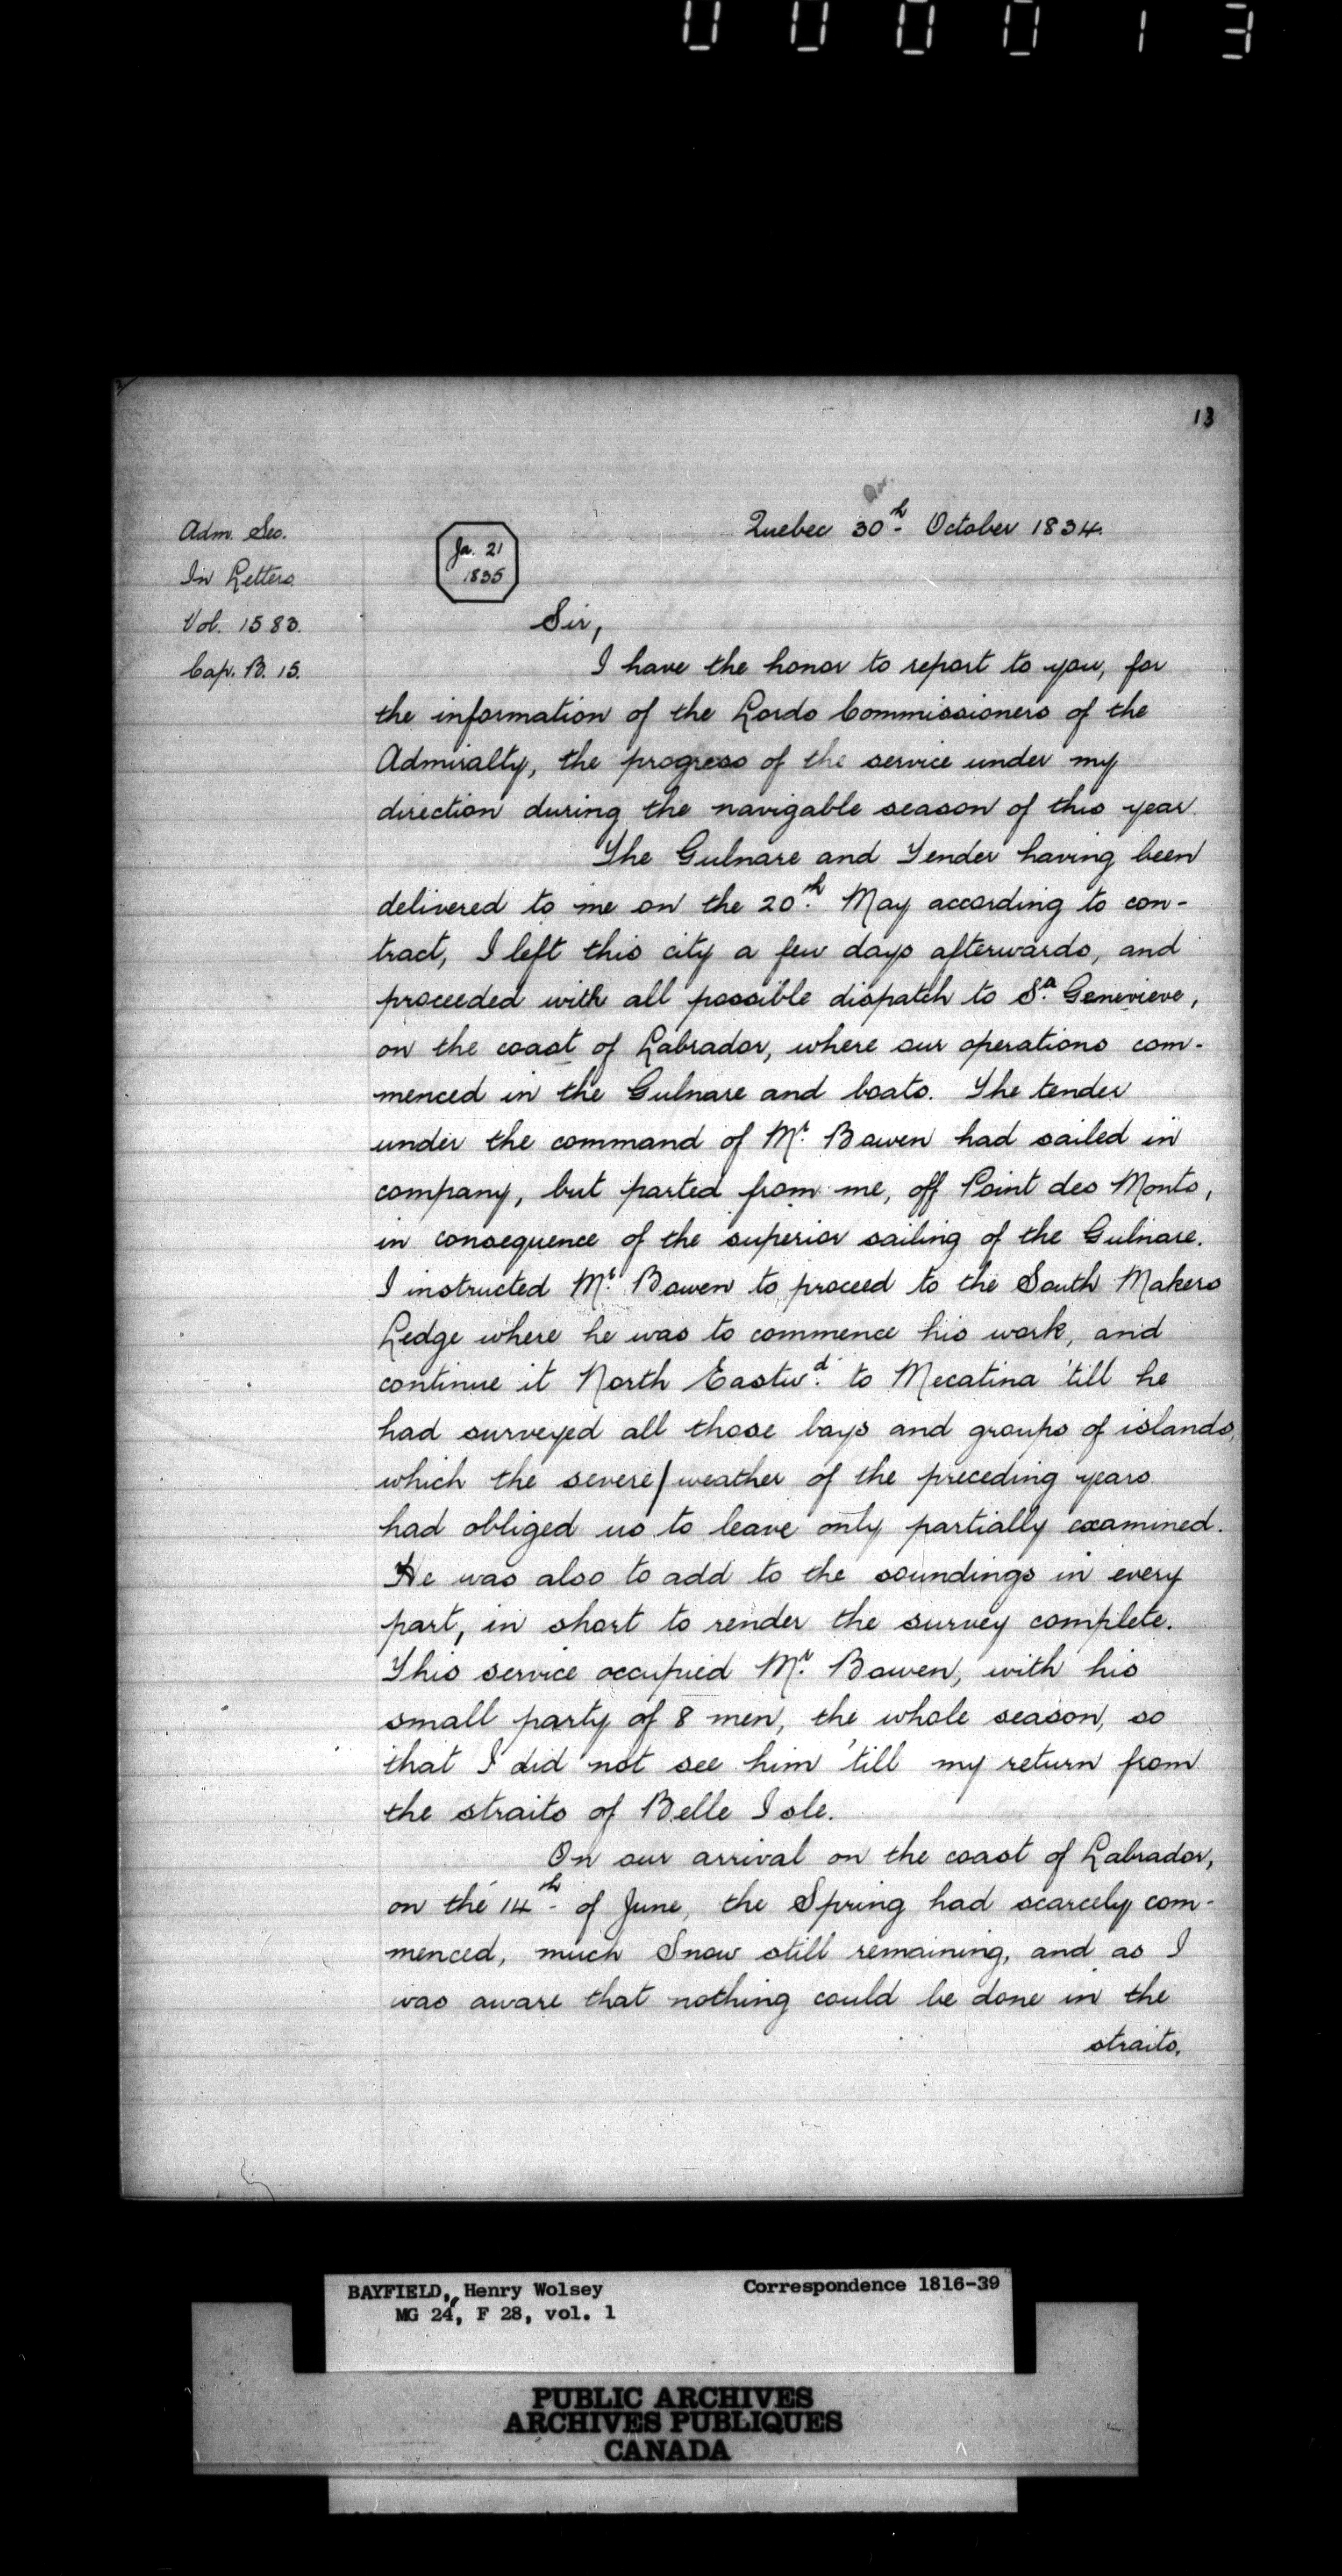 0 0 0 0 1 3
13
Quebec 30th October 1834.
Adm. Sec.
In Letters
Vol. 1583.
Cap. B. 15.
Ja. 21
1835
Sir,
I have the honor to report to you, for
the information of the Lords Commissioners of the
Admiralty, the progress of the service under my
direction during the navigable season of this year.
The Gulnare and Tender having been
delivered to me on the 20th May according to con-
tract, I left this city a few days afterwards, and
proceeded with all possible dispatch to Sa. Genevieve,
on the coast of Labrador, where our operations com-
menced in the Gulnare and boats. The tender
under the command of Mr. Bowen had sailed in
company, but parted from me, off Point des Monts,
in consequence of the superior sailing of the Gulnare.
I instructed Mr. Bowen to proceed to the South Makers
Ledge where he was to commence his work, and
continue it North Eastwd. to Mecatina 'till he
had surveyed all those bays and groups of islands,
which the severe/weather of the preceding years
had obliged us to leave only partially examined.
He was also to add to the soundings in every
part, in short to render the survey complete.
This service occupied Mr. Bowen, with his
small party of 8 men, the whole season, so
that I did not see him 'till my return from
the straits of Belle Isle.
On our arrival on the coast of Labrador,
on the 14th of June, the Spring had scarcely com-
menced, much Snow still remaining, and as I
was aware that nothing could be done in the
straits.
BAYFIELD, Henry Wolsey Correspondence 1816-39
MG 24, F 28, vol. 1
PUBLIC ARCHIVES
ARCHIVES PUBLIQUES
CANADA